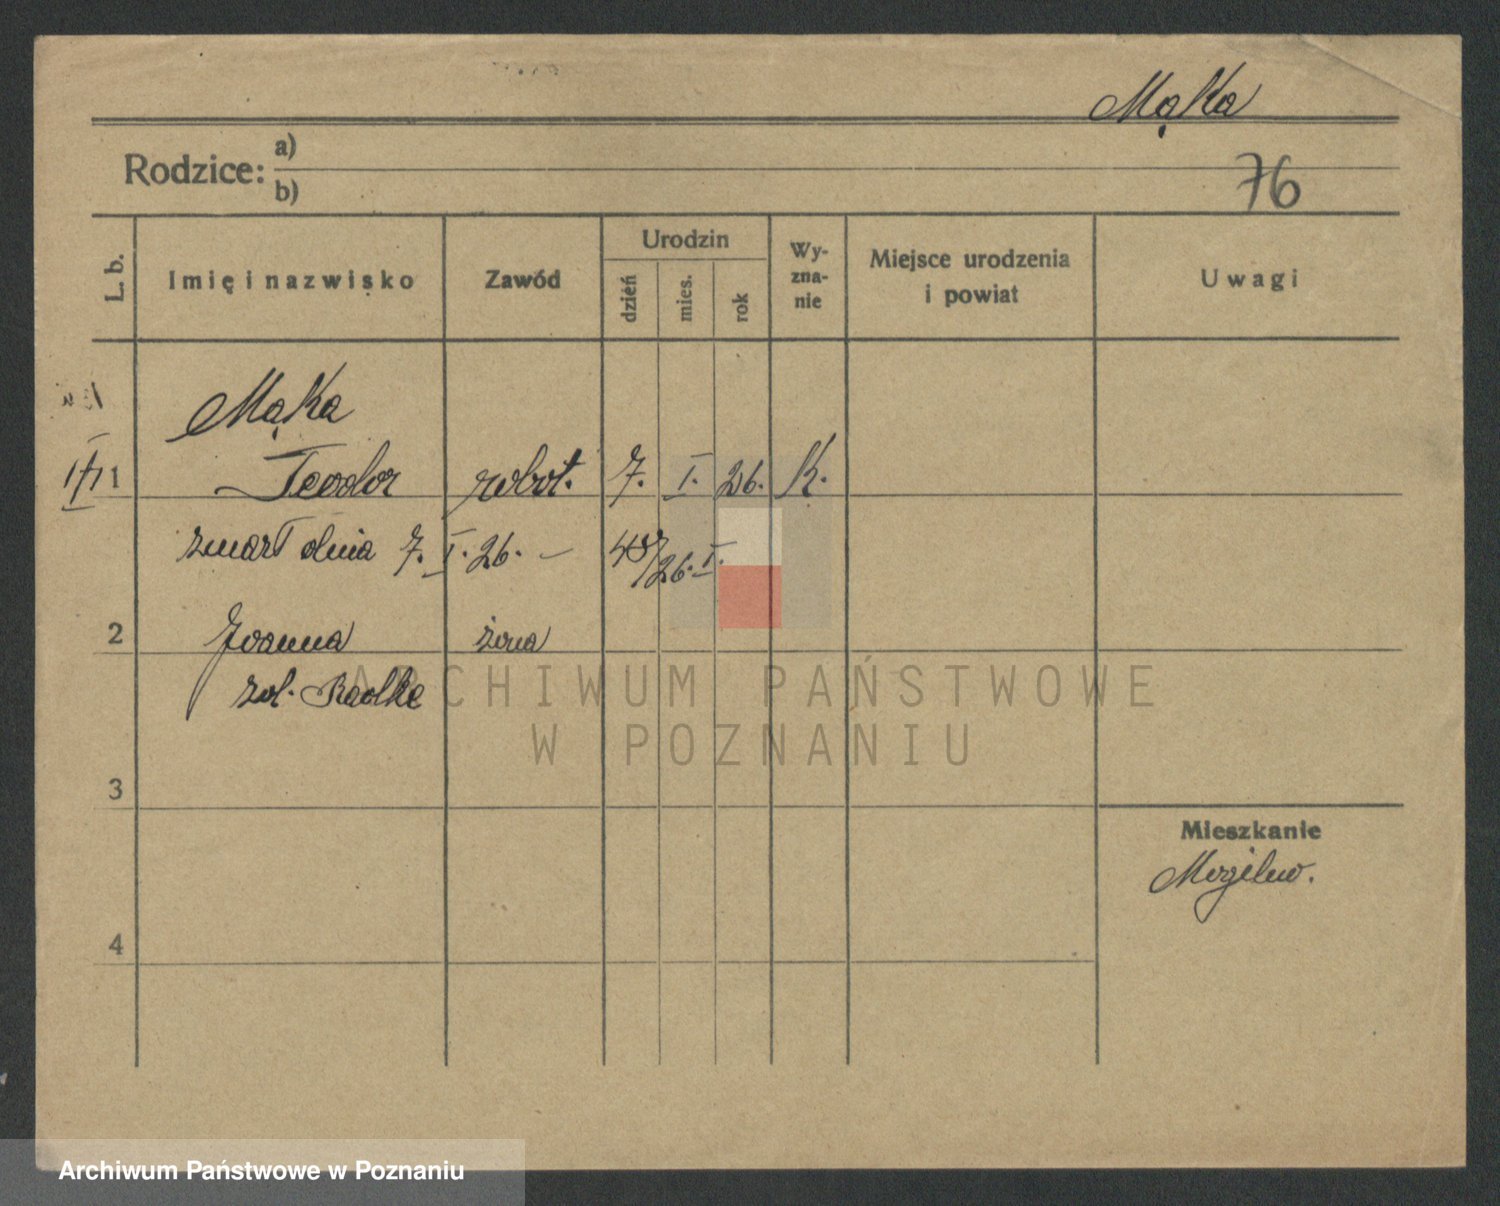 Mąka
Rodzice: a)
b)
76
L. b.
Imię i nazwisko
Zawód
Urodzin
dzień
mies.
rok
Wy-
zna-
nie
Miejsce urodzenia
i powiat
Uwagi
Mąka
1 Teodor robot. 7. I. 26. K.
zmarł dnia 7. I. 26. — 48/26. I.
2 Joanna żona
zol. Radtke
ARCHIWUM PAŃSTWOWE
W POZNANIU
3
Mieszkanie
Mogilew.
4
Archiwum Państwowe w Poznaniu